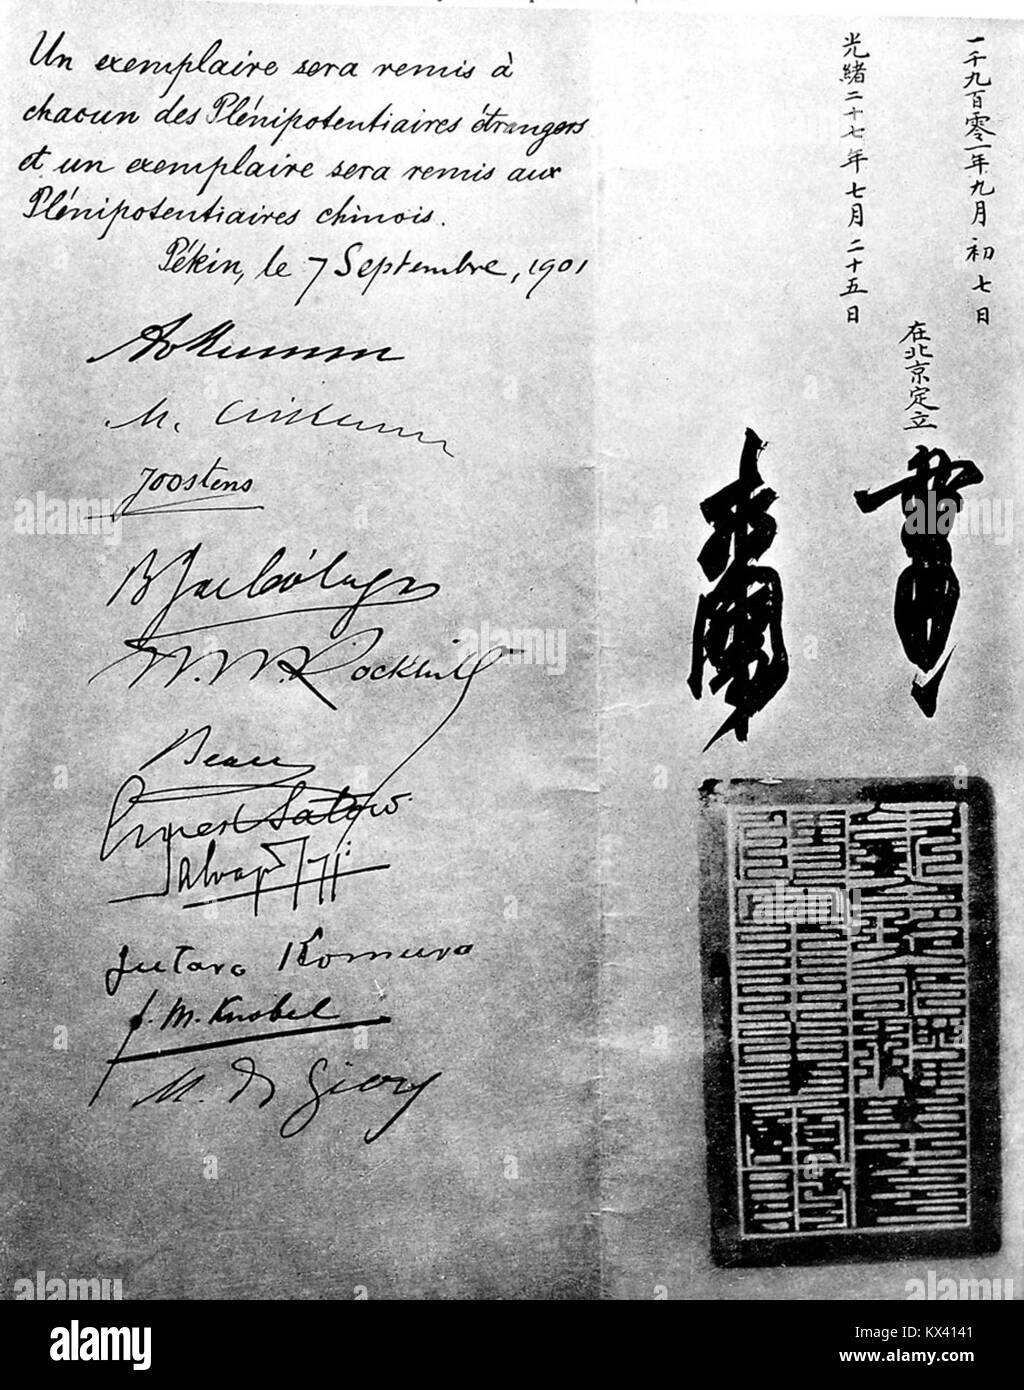 Un exemplaire sera remis à
chacun des Plénipotentiaires étrangers
et un exemplaire sera remis aux
Plénipotentiaires chinois.
Pékin, le 7 Septembre, 1901
A v Mumm
M. Czikann
Joostens
B J de Cólogan
W. W. Rockhill
Beau
Ernest Satow
Salvago
Jutaro Komura
f. M. Knobel
M. de Giers
一千九百零一年九月初七日
光緒二十七年七月二十五日
在北京定立
alamy
alamy stock photo
KX4141
www.alamy.com